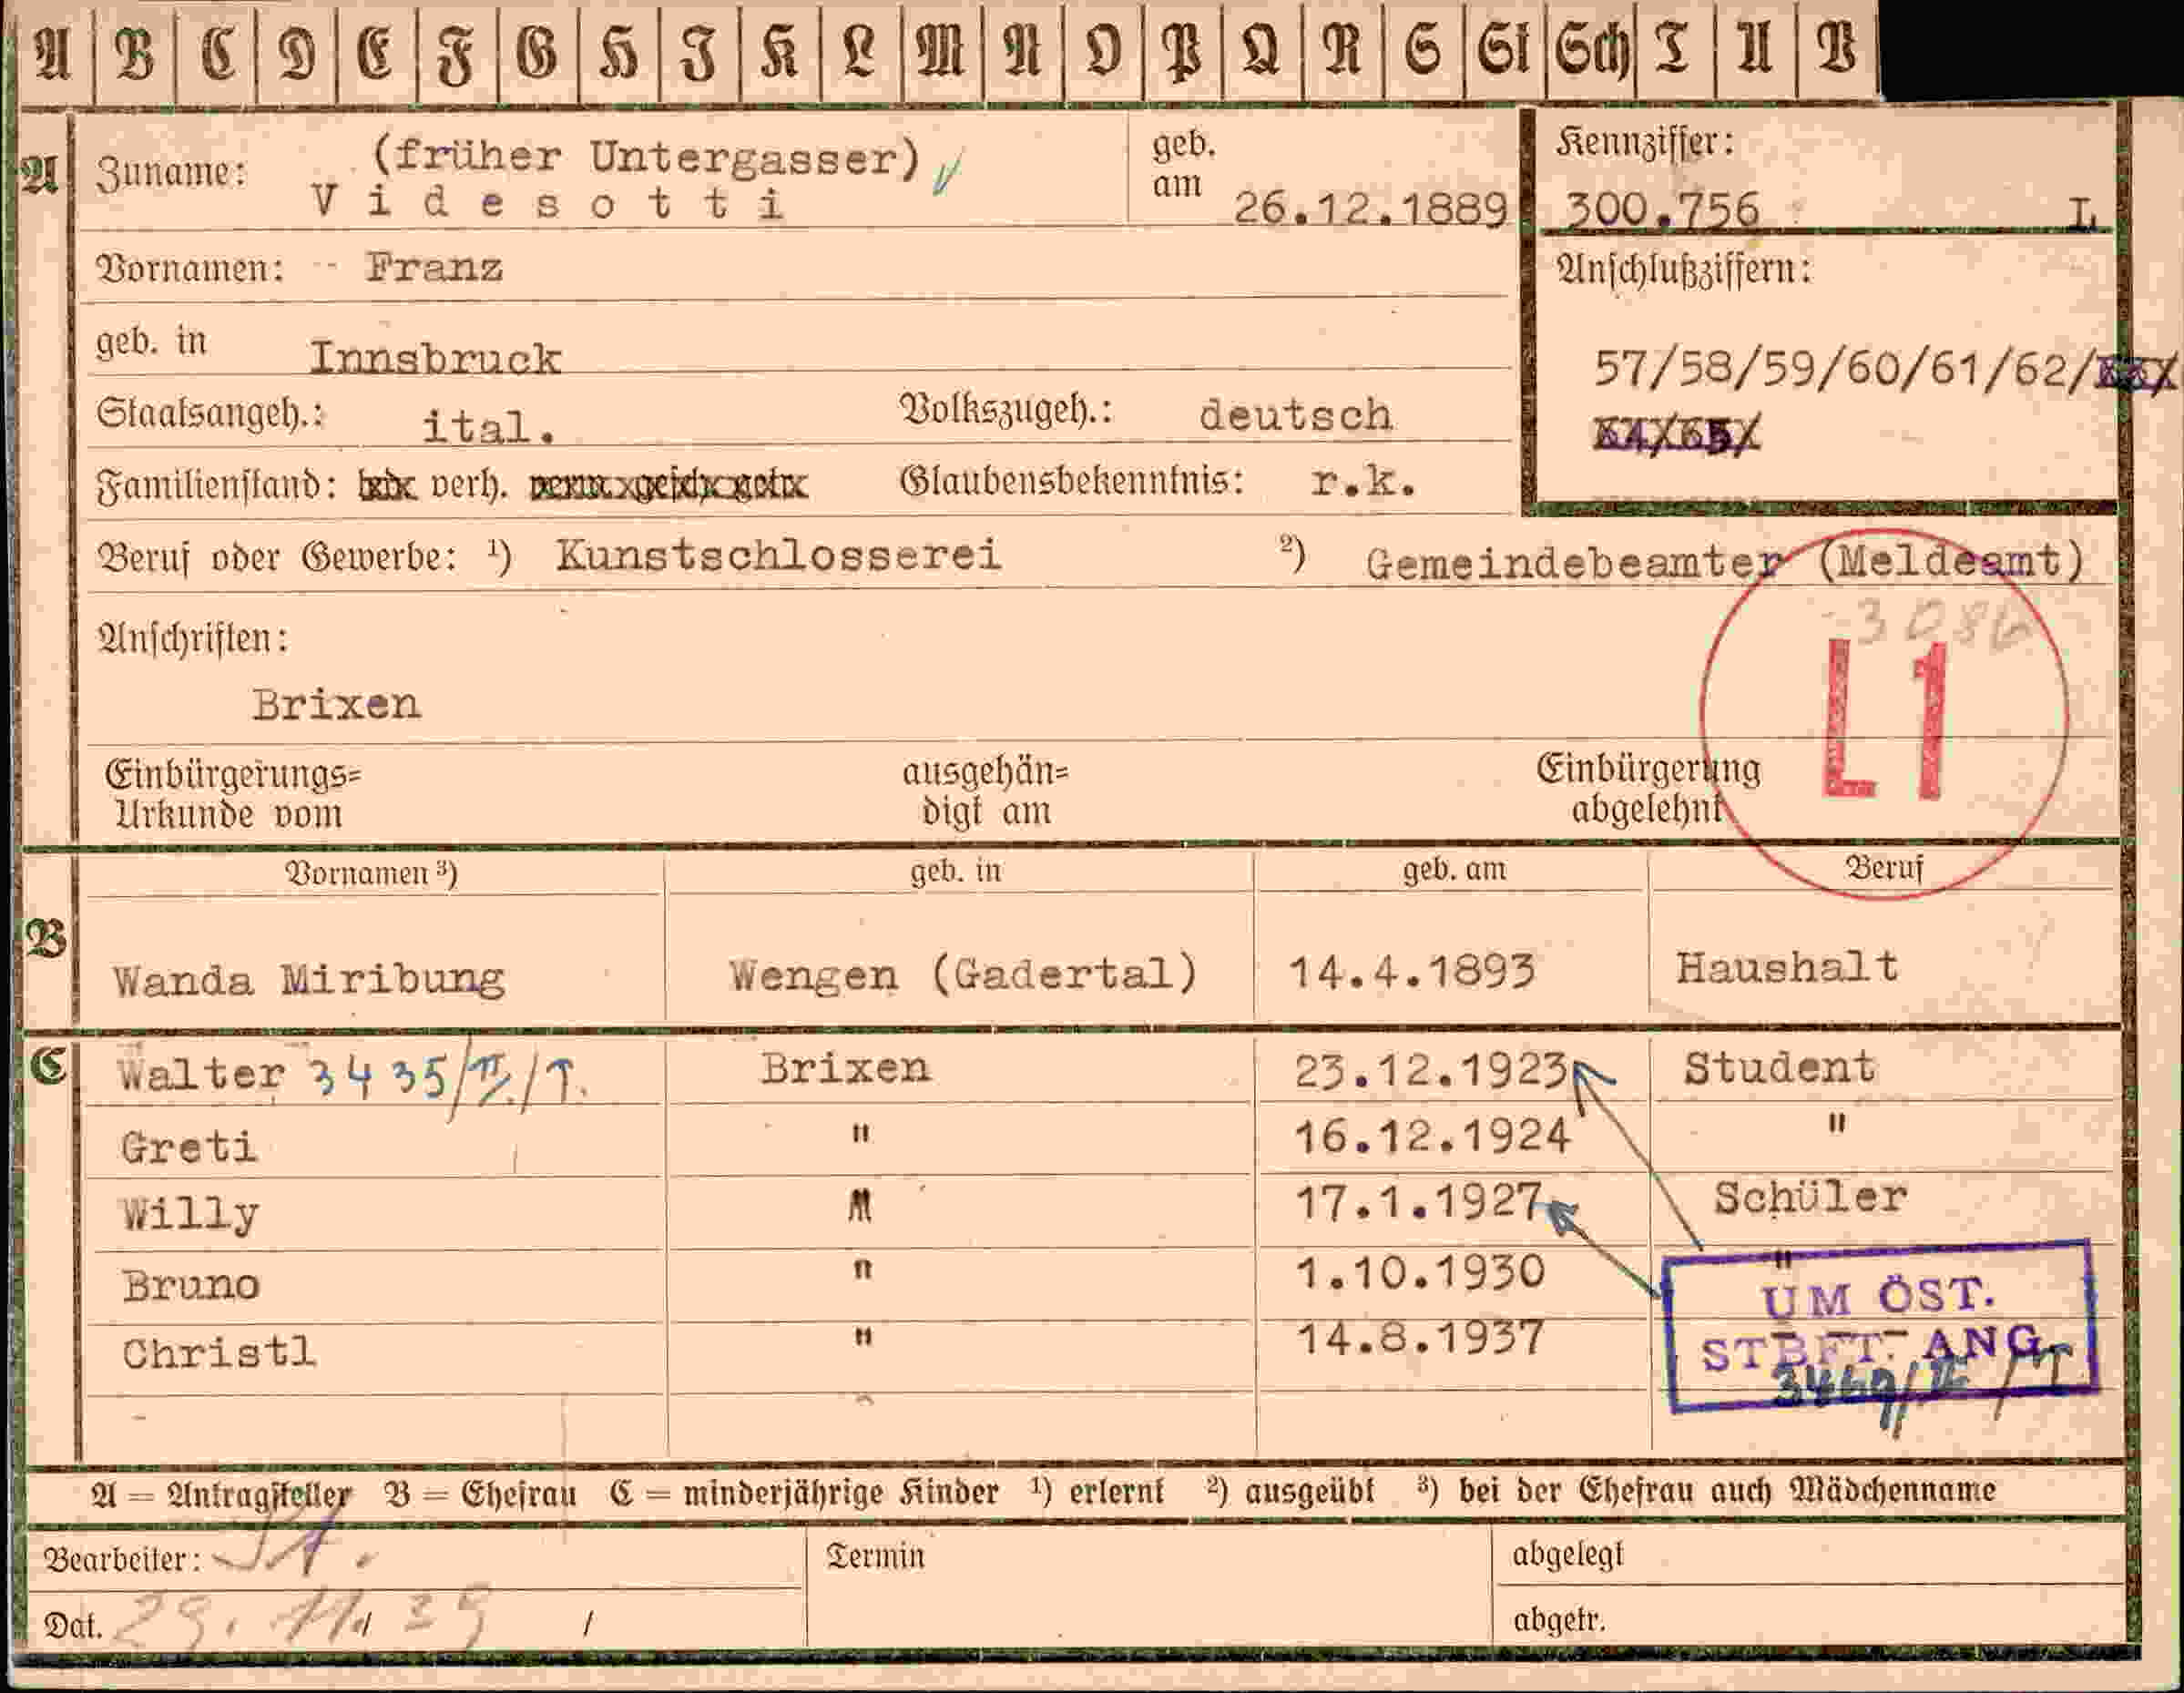 A B C D E F G H I K L M N O P Q R S St Sch T U V
A Zuname: (früher Untergasser)
V i d e s o t t i
geb. am 26.12.1889
Kennziffer:
300.756 L
Vornamen: Franz
Anschlußziffern:
57/58/59/60/61/62/
geb. in Innsbruck
Staatsangeh.: ital. Volkszugeh.: deutsch
Familienstand: verh. Glaubensbekenntnis: r.k.
Beruf oder Gewerbe: ¹) Kunstschlosserei ²) Gemeindebeamter (Meldeamt)
Anschriften:
3086
L1
Brixen
Einbürgerungs= ausgehän= Einbürgerung
Urkunde vom digt am abgelehnt
B Vornamen ³) geb. in geb. am Beruf
Wanda Miribung Wengen (Gadertal) 14.4.1893 Haushalt
C Walter 3435/II/T. Brixen 23.12.1923 Student
Greti " 16.12.1924 "
Willy " 17.1.1927 Schüler
Bruno " 1.10.1930 "
Christl " 14.8.1937
UM ÖST.
STBFT. ANG.
A = Antragsteller B = Ehefrau C = minderjährige Kinder ¹) erlernt ²) ausgeübt ³) bei der Ehefrau auch Mädchenname
Bearbeiter: Termin abgelegt
Dat. 29.11.39 / abgetr.